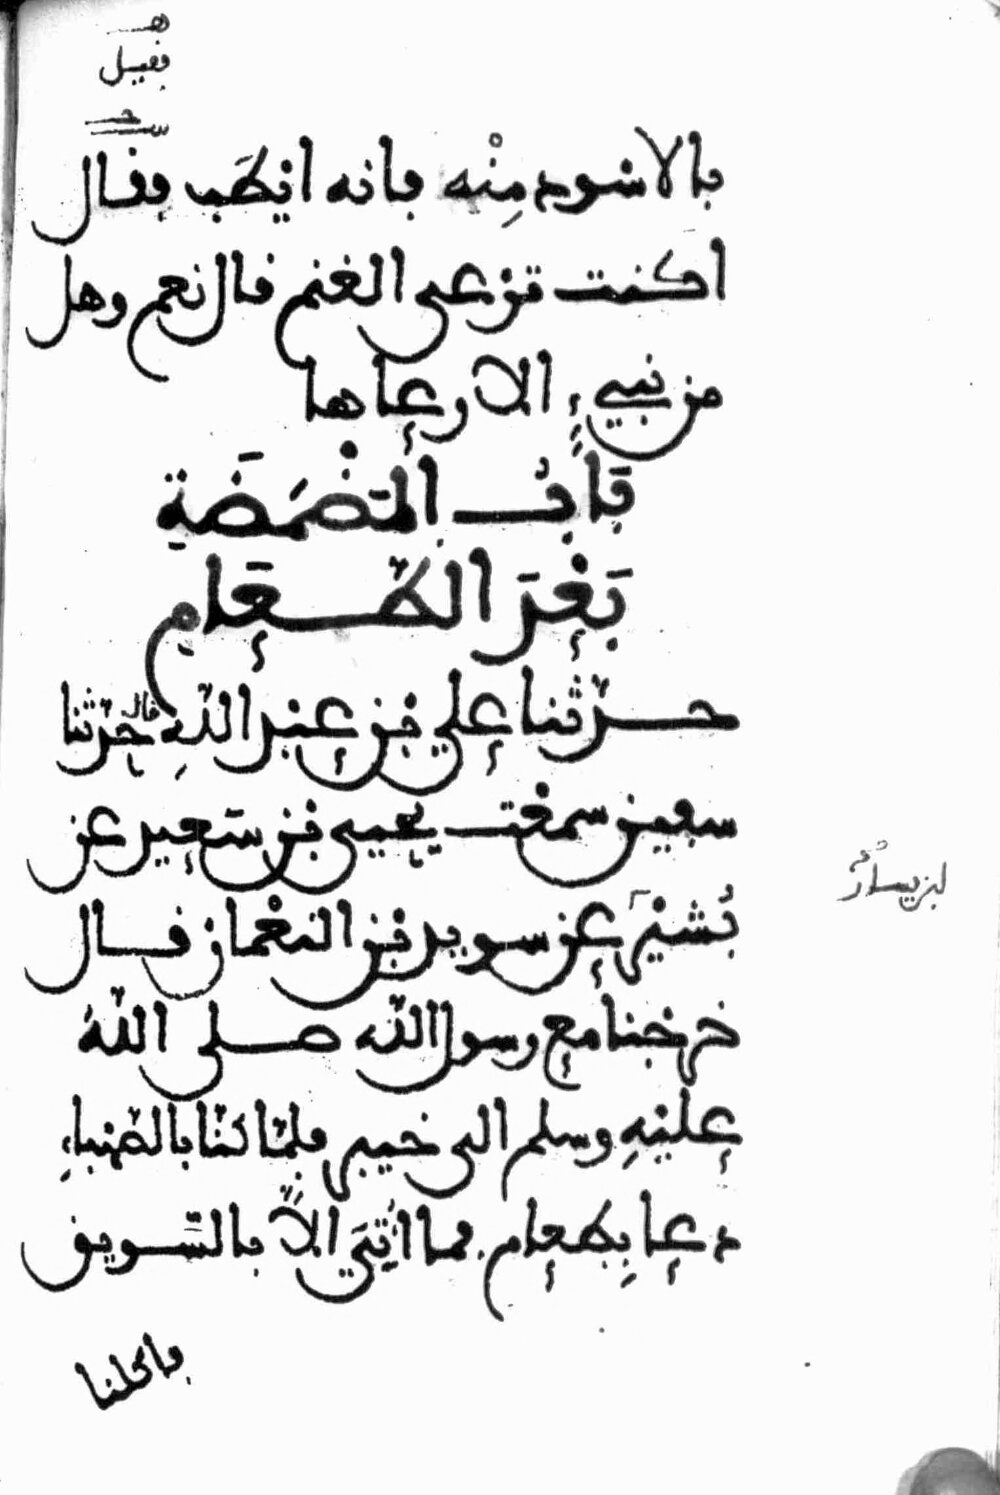 هـ
فقيل
صح
بالاسود مِنْه فانه ايطَب فقال
اكنت ترعى الغنم قال نعم وهل
من نبيٍ الا رعاها
بَابُ المَضْمَضَةِ
بَعْدَ الطَّعَامِ
حدّثنا علي بن عبد اللّهِ قال حدّثنا
سفين سمعْت يحيى بن سَعيد عن
بُشَيْر عن سويد بن النعْمان قال
خرجنا مع رسول اللّه صلى اللّهُ
عليْهِ وسلم الى خيبر فلمّا كنّا بالصّهباءِ
دعا بِطعام فما اُتِيَ الاَّ بالسّويق
فاكلنا
ابن يسارْ